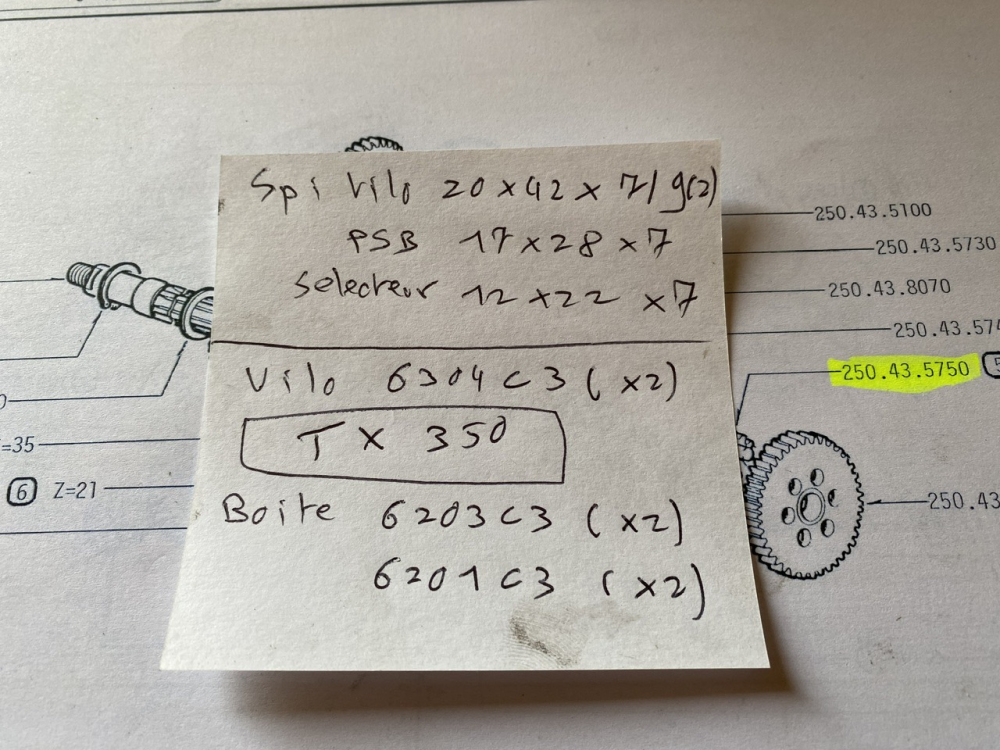 Spi Vilo 20 x 42 x 7/9(2)
PSB 17 x 28 x 7
Selecteur 12 x 22 x 7
Vilo 6304 C3 (x2)
TX 350
Boite 6203 C3 (x2)
6201 C3 (x2)
250.43.5100
250.43.5730
250.43.8070
250.43.574
250.43.5750
=35
6 Z=21
250.43